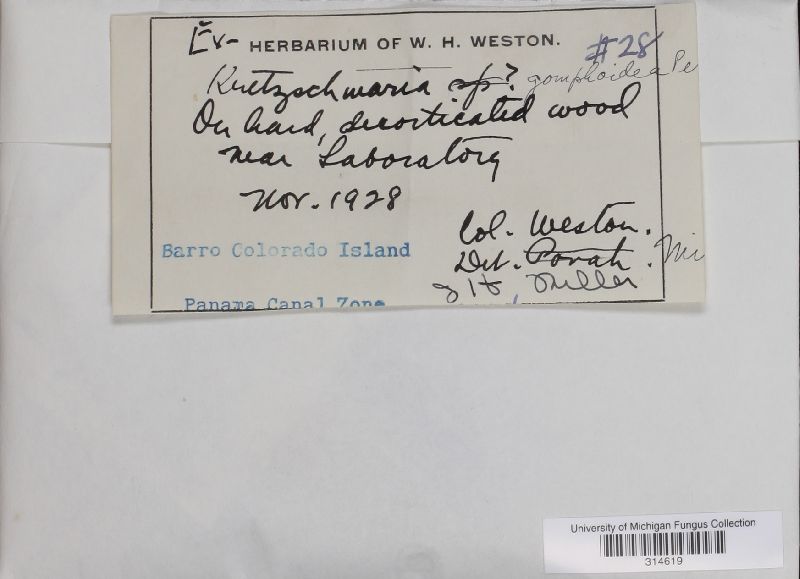 Ex- HERBARIUM OF W. H. WESTON.
#28
Kretzschmaria sp? gomphoidea Pe
On hard, decorticated wood
near Laboratory
Nov. 1928
Barro Colorado Island
Panama Canal Zone
Col. Weston.
Det. Ponah. Mi
J H. Miller
University of Michigan Fungus Collection
314619